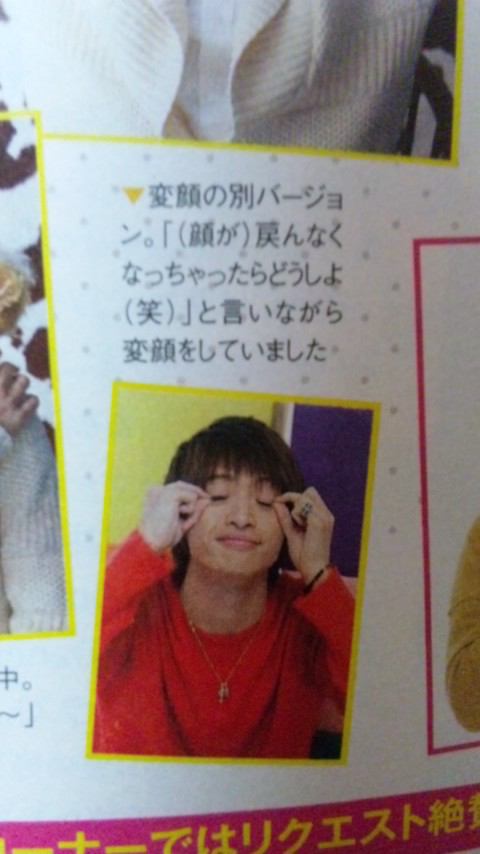 ▼変顔の別バージョ
ン。「(顔が)戻んなく
なっちゃったらどうしよ
(笑)」と言いながら
変顔をしていました
中。
～」
コーナーではリクエスト絶賛